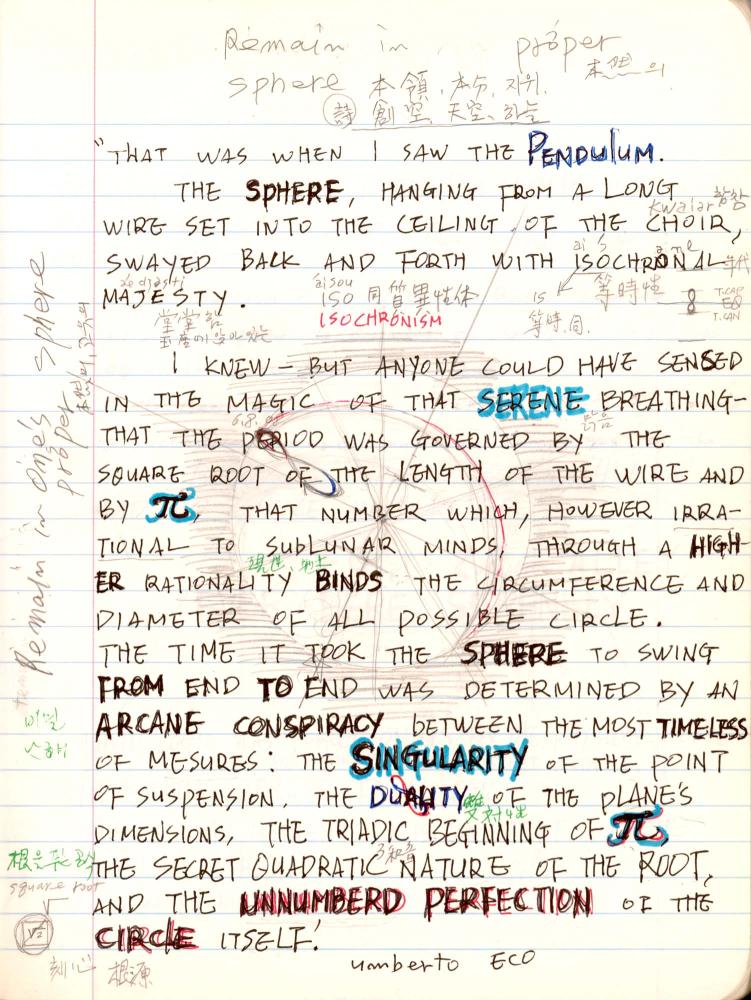 Remain in proper
sphere 本領, 本分, 지위.
本然의
詩 創空, 天空, 하늘
"THAT WAS WHEN I SAW THE PENDULUM.
THE SPHERE, HANGING FROM A LONG
WIRE SET INTO THE CEILING OF THE CHOIR,
kwaiar 합창
SWAYED BACK AND FORTH WITH ISOCHRONAL
年代
MAJESTY.
ISO 同質異性体
IS
等時性
T.CAP
EQ
T.CAN
堂堂함
ISOCHRONISM
等時.同.
玉座에 앉아 있는
I KNEW – BUT ANYONE COULD HAVE SENSED
IN THE MAGIC OF THAT SERENE BREATHING–
맑음
THAT THE PERIOD WAS GOVERNED BY THE
SQUARE ROOT OF THE LENGTH OF THE WIRE AND
BY π, THAT NUMBER WHICH, HOWEVER IRRA-
TIONAL TO SUBLUNAR MINDS, THROUGH A HIGH-
ER RATIONALITY BINDS THE CIRCUMFERENCE AND
DIAMETER OF ALL POSSIBLE CIRCLE.
THE TIME IT TOOK THE SPHERE TO SWING
FROM END TO END WAS DETERMINED BY AN
ARCANE CONSPIRACY BETWEEN THE MOST TIMELESS
OF MESURES: THE SINGULARITY OF THE POINT
OF SUSPENSION, THE DUALITY OF THE PLANE'S
双対性
DIMENSIONS, THE TRIADIC BEGINNING OF π,
3和音
THE SECRET QUADRATIC NATURE OF THE ROOT,
AND THE UNNUMBERD PERFECTION OF THE
CIRCLE ITSELF.'
umberto ECO
Remain in One's sphere
proper
비밀
스러이
根을 푸는 공식
square root
√2
刻心 根源